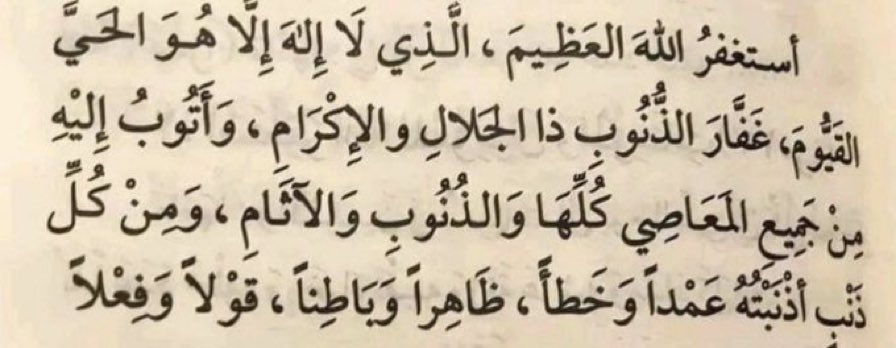 أستغفرُ اللهَ العَظِيمَ ، الَّذِي لَا إِلهَ إِلَّا هُوَ الحَيَّ
القَيُّومَ، غَفَّارَ الذُّنُوبِ ذا الجَلالِ والإِكْرَامِ ، وَأَتُوبُ إِلَيْهِ
مِنْ جَمِيعِ المَعَاصِي كُلِّهَا وَالذُنُوبِ وَالآثَامِ ، وَمِنْ كُلِّ
ذَنْبٍ أذْنَبْتُهُ عَمْداً وَخَطأً ، ظَاهِراً وَبَاطِناً ، قَوْلاً وَفِعْلاً